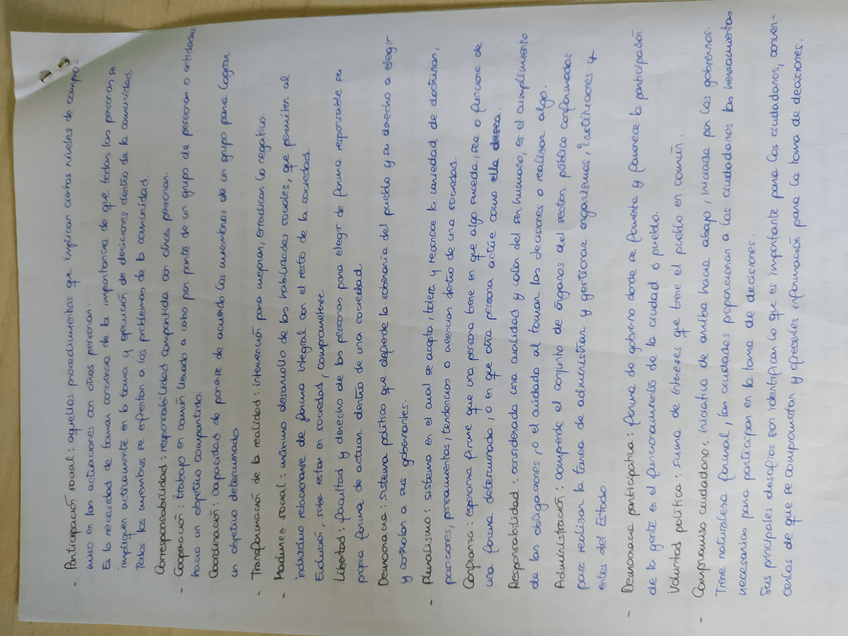 - Participación social: aquellos procedimientos que implican ciertos niveles de compro-
miso en las actuaciones con otras personas.
Es la necesidad de tomar conciencia de la importancia de que todas las personas se
impliquen activamente en la toma y ejecución de decisiones dentro de la comunidad.
Todos los miembros se enfrentan a los problemas de la comunidad.
Corresponsabilidad: responsabilidad compartida con otras personas.
- Cooperación: trabajo en común llevado a cabo por parte de un grupo de personas o entidades
hacia un objetivo compartido.
Coordinación: capacidades de ponerse de acuerdo los miembros de un grupo para lograr
un objetivo determinado
- Transformación de la realidad: intervención para mejorar, erradicar lo negativo.
- Madurez social: máximo desarrollo de las habilidades sociales, que permiten al
individuo relacionarse de forma integral con el resto de la sociedad.
Evolución, saber estar en sociedad, comprometerse.
Libertad: facultad y derecho de las personas para elegir de forma responsable su
propia forma de actuar dentro de una sociedad.
Democracia: sistema político que depende la soberanía del pueblo y su derecho a elegir
y controlar a sus gobernantes.
- Pluralismo: sistema en el cual se acepta, tolera y reconoce la variedad de doctrinas,
posiciones, pensamientos, tendencias o creencias dentro de una sociedad.
Confianza: esperanza firme que una persona tiene en que algo suceda, sea o funcione de
una forma determinada, o en que otra persona actúe como ella desea.
Responsabilidad: considerada una cualidad y valor del ser humano, es el cumplimiento
de las obligaciones, o el cuidado al tomar las decisiones o realizar algo.
Administración: comprende el conjunto de órganos del sector público conformados
para realizar la tarea de administrar y gestionar organismos, instituciones y
entes del Estado.
- Democracia participativa: forma de gobierno donde se fomenta y favorece la participación
de la gente en el funcionamiento de la ciudad o pueblo.
Voluntad política: suma de intereses que tiene el pueblo en común.
- Compromiso ciudadano: iniciativa de arriba hacia abajo, iniciada por los gobiernos.
Tiene naturaleza formal, las ciudades proporcionan a los ciudadanos las herramientas
necesarias para participar en la toma de decisiones.
Sus principales desafíos son identificar lo que es importante para los ciudadanos, conven-
cerlos de que se comprometan y ofrecerles información para la toma de decisiones.